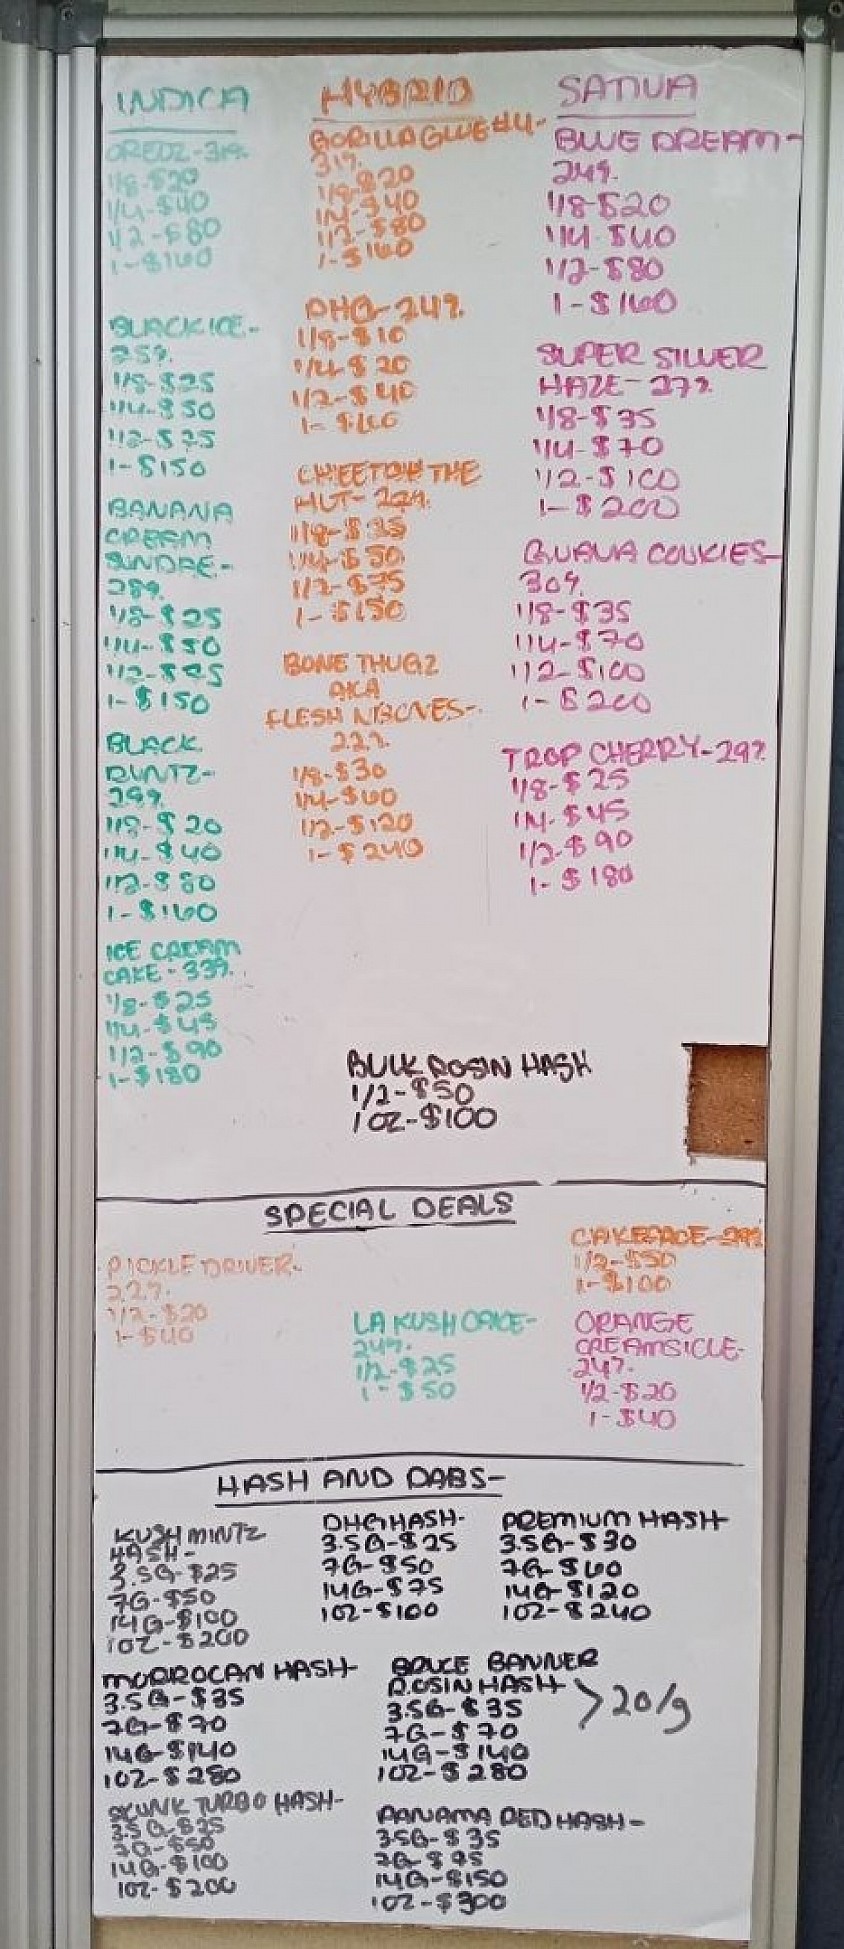 INDICA
OREOZ-31%
1/8-$20
1/4-$40
1/2-$80
1-$160
BLACK ICE-
25%
1/8-$25
1/4-$50
1/2-$75
1-$150
BANANA
CREAM
SUNDAE-
28%
1/8-$25
1/4-$50
1/2-$75
1-$150
BLACK
RUNTZ-
29%
1/8-$20
1/4-$40
1/2-$80
1-$160
ICE CREAM
CAKE-33%
1/8-$25
1/4-$45
1/2-$90
1-$180
HYBRID
GORILLA GLUE #4-
31%
1/8-$20
1/4-$40
1/2-$80
1-$160
DHG-24%
1/8-$10
1/4-$20
1/2-$40
1-$60
CHEETAH THE
HUT-22%
1/8-$35
1/4-$50
1/2-$75
1-$150
BONE THUGZ
AKA
FLESH N BONES-
22%
1/8-$30
1/4-$60
1/2-$120
1-$240
SATIVA
BLUE DREAM-
24%
1/8-$20
1/4-$40
1/2-$80
1-$160
SUPER SILVER
HAZE-27%
1/8-$35
1/4-$70
1/2-$100
1-$200
GUAVA COOKIES-
30%
1/8-$35
1/4-$70
1/2-$100
1-$200
TROP CHERRY-29%
1/8-$25
1/4-$45
1/2-$90
1-$180
BULK ROSIN HASH
1/2-$50
1 OZ-$100
SPECIAL DEALS
PICKLE DRIVER-
22%
1/2-$20
1-$40
LA KUSH CAKE-
24%
1/2-$25
1-$50
CAKEFACE-29%
1/2-$50
1-$100
ORANGE
CREAMSICLE-
24%
1/2-$20
1-$40
HASH AND DABS-
KUSH MINTZ
HASH-
3.5G-$25
7G-$50
14G-$100
1OZ-$200
DHG HASH-
3.5G-$25
7G-$50
14G-$75
1OZ-$100
PREMIUM HASH
3.5G-$30
7G-$60
14G-$120
1OZ-$240
MORROCAN HASH-
3.5G-$35
7G-$70
14G-$140
1OZ-$280
BRUCE BANNER
ROSIN HASH
3.5G-$35
7G-$70
14G-$140
1OZ-$280
>20/g
SKUNK TURBO HASH-
3.5G-$25
7G-$50
14G-$100
1OZ-$200
PANAMA RED HASH-
3.5G-$35
7G-$75
14G-$150
1OZ-$300